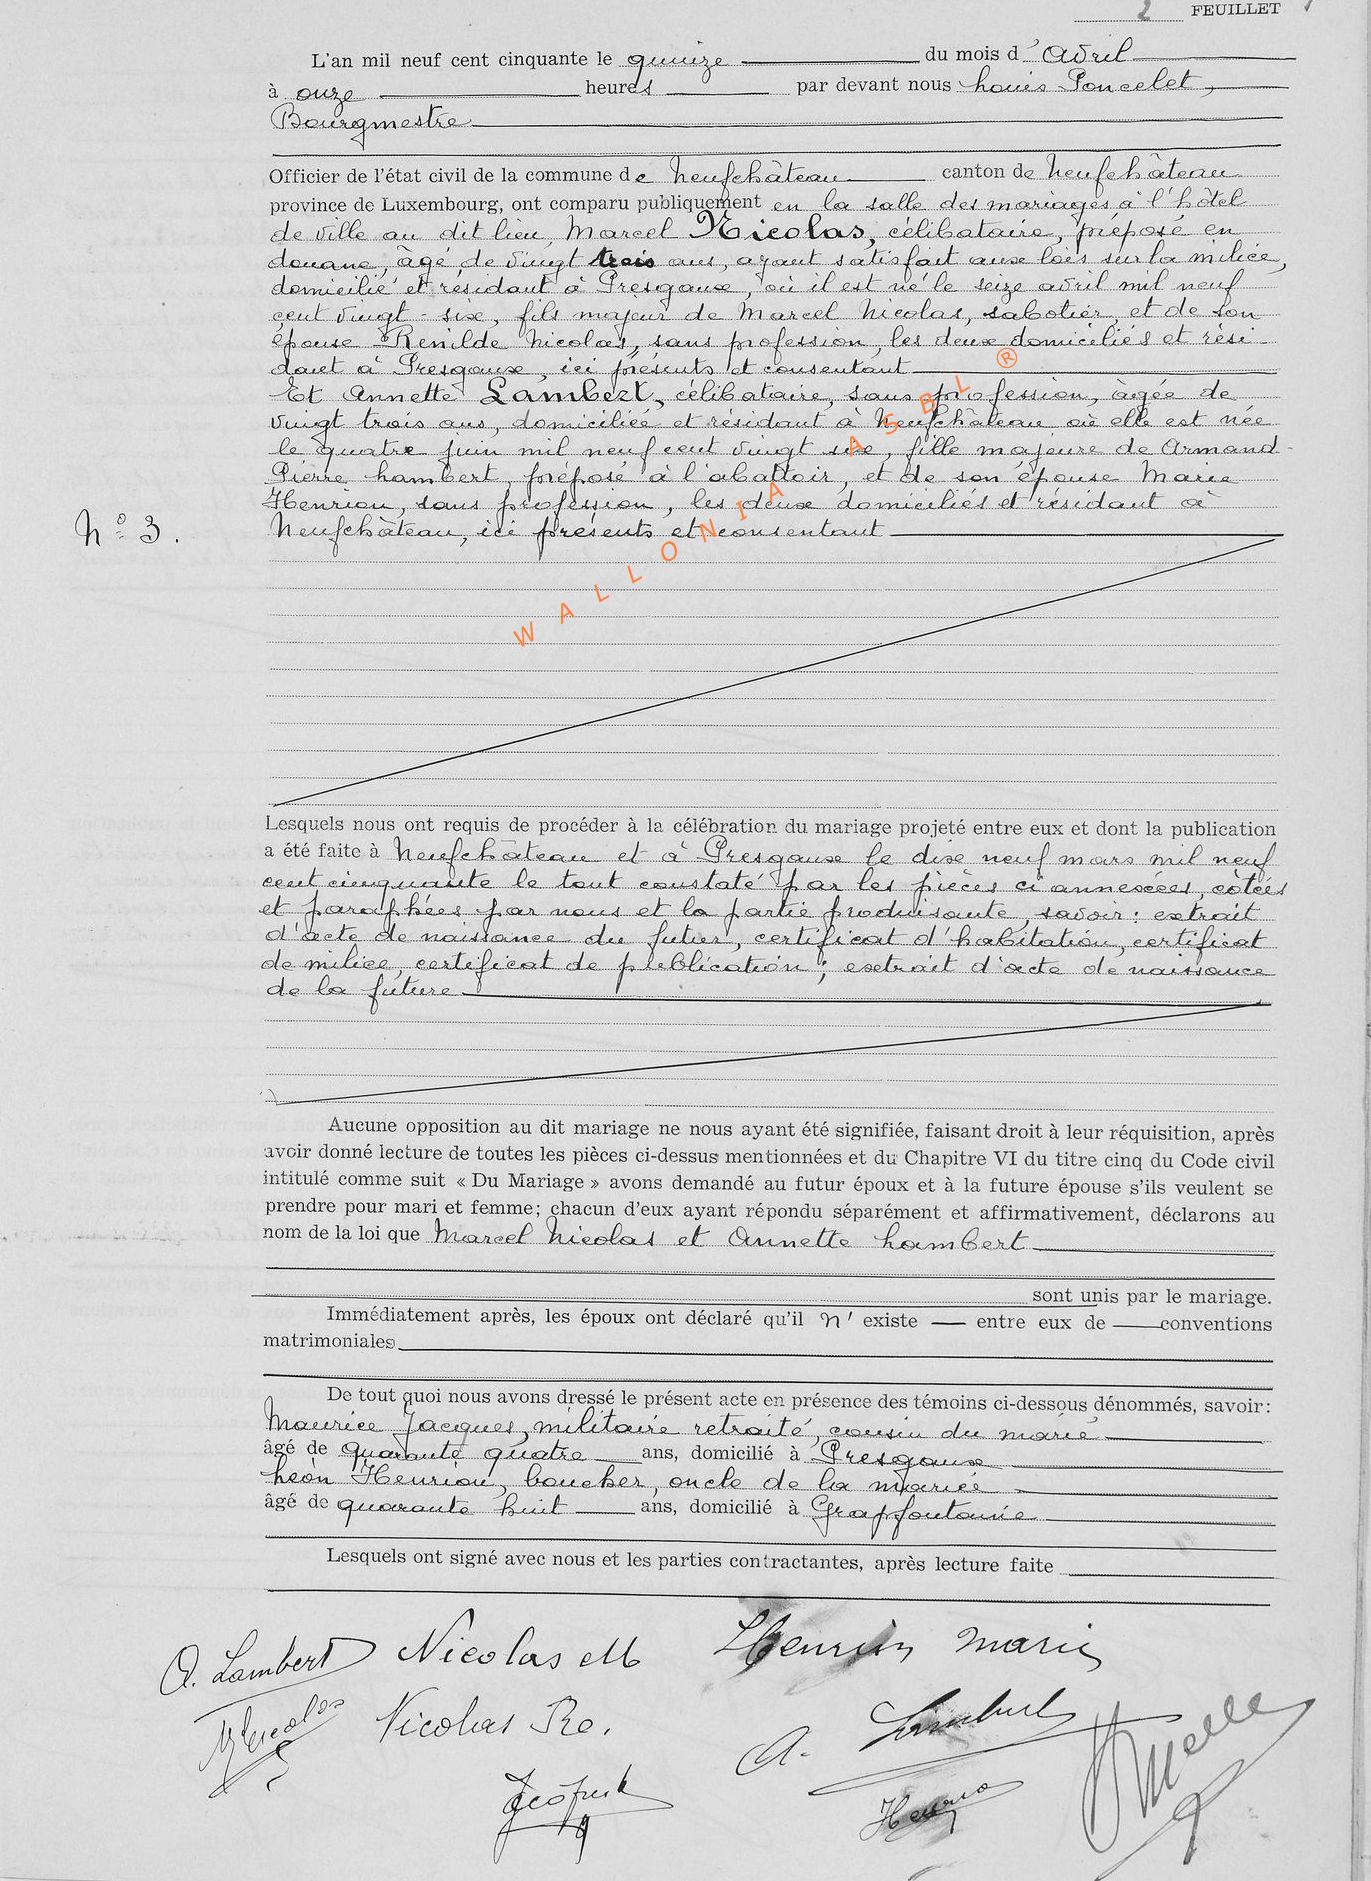 2 FEUILLET
L'an mil neuf cent cinquante le quinze du mois d'Avril
à onze heures par devant nous Louis Poncelet,
Bourgmestre
Officier de l'état civil de la commune de Neufchâteau canton de Neufchâteau
province de Luxembourg, ont comparu publiquement en la salle des mariages à l'hôtel
de ville au dit lieu, Marcel Nicolas, célibataire, préposé en
douane, âgé de vingt trois ans, ayant satisfait aux lois sur la milice,
domicilié et résidant à Presgaux, où il est né le seize avril mil neuf
cent vingt-six, fils majeur de Marcel Nicolas, sabotier, et de son
épouse Renilde Nicolas, sans profession, les deux domiciliés et rési-
dant à Presgaux, ici présents et consentant
Et Annette Lambert, célibataire, sans profession, âgée de
vingt trois ans, domiciliée et résidant à Neufchâteau où elle est née
le quatre juin mil neuf cent vingt six, fille majeure de Armand-
Pierre Lambert, préposé à l'abattoir, et de son épouse Marie
Henrion, sans profession, les deux domiciliés et résidant à
N° 3. Neufchâteau, ici présents et consentant
WALLONIA ASBL ®
Lesquels nous ont requis de procéder à la célébration du mariage projeté entre eux et dont la publication
a été faite à Neufchâteau et à Presgaux le dix neuf mars mil neuf
cent cinquante le tout constaté par les pièces ci annexées, côtées
et paraphées par nous et la partie produisante, savoir: extrait
d'acte de naissance du futur, certificat d'habitation, certificat
de milice, certificat de publication; extrait d'acte de naissance
de la future
Aucune opposition au dit mariage ne nous ayant été signifiée, faisant droit à leur réquisition, après
avoir donné lecture de toutes les pièces ci-dessus mentionnées et du Chapitre VI du titre cinq du Code civil
intitulé comme suit « Du Mariage » avons demandé au futur époux et à la future épouse s'ils veulent se
prendre pour mari et femme; chacun d'eux ayant répondu séparément et affirmativement, déclarons au
nom de la loi que Marcel Nicolas et Annette Lambert
sont unis par le mariage.
Immédiatement après, les époux ont déclaré qu'il n'existe entre eux de conventions
matrimoniales
De tout quoi nous avons dressé le présent acte en présence des témoins ci-dessous dénommés, savoir:
Maurice Jacques, militaire retraité, cousin du marié
âgé de quarante quatre ans, domicilié à Presgaux
Léon Henrion, boucher, oncle de la mariée
âgé de quarante huit ans, domicilié à Grapfontaine
Lesquels ont signé avec nous et les parties contractantes, après lecture faite
A. Lambert Nicolas M Henrion Marie
Nicolas Re. A. Lambert